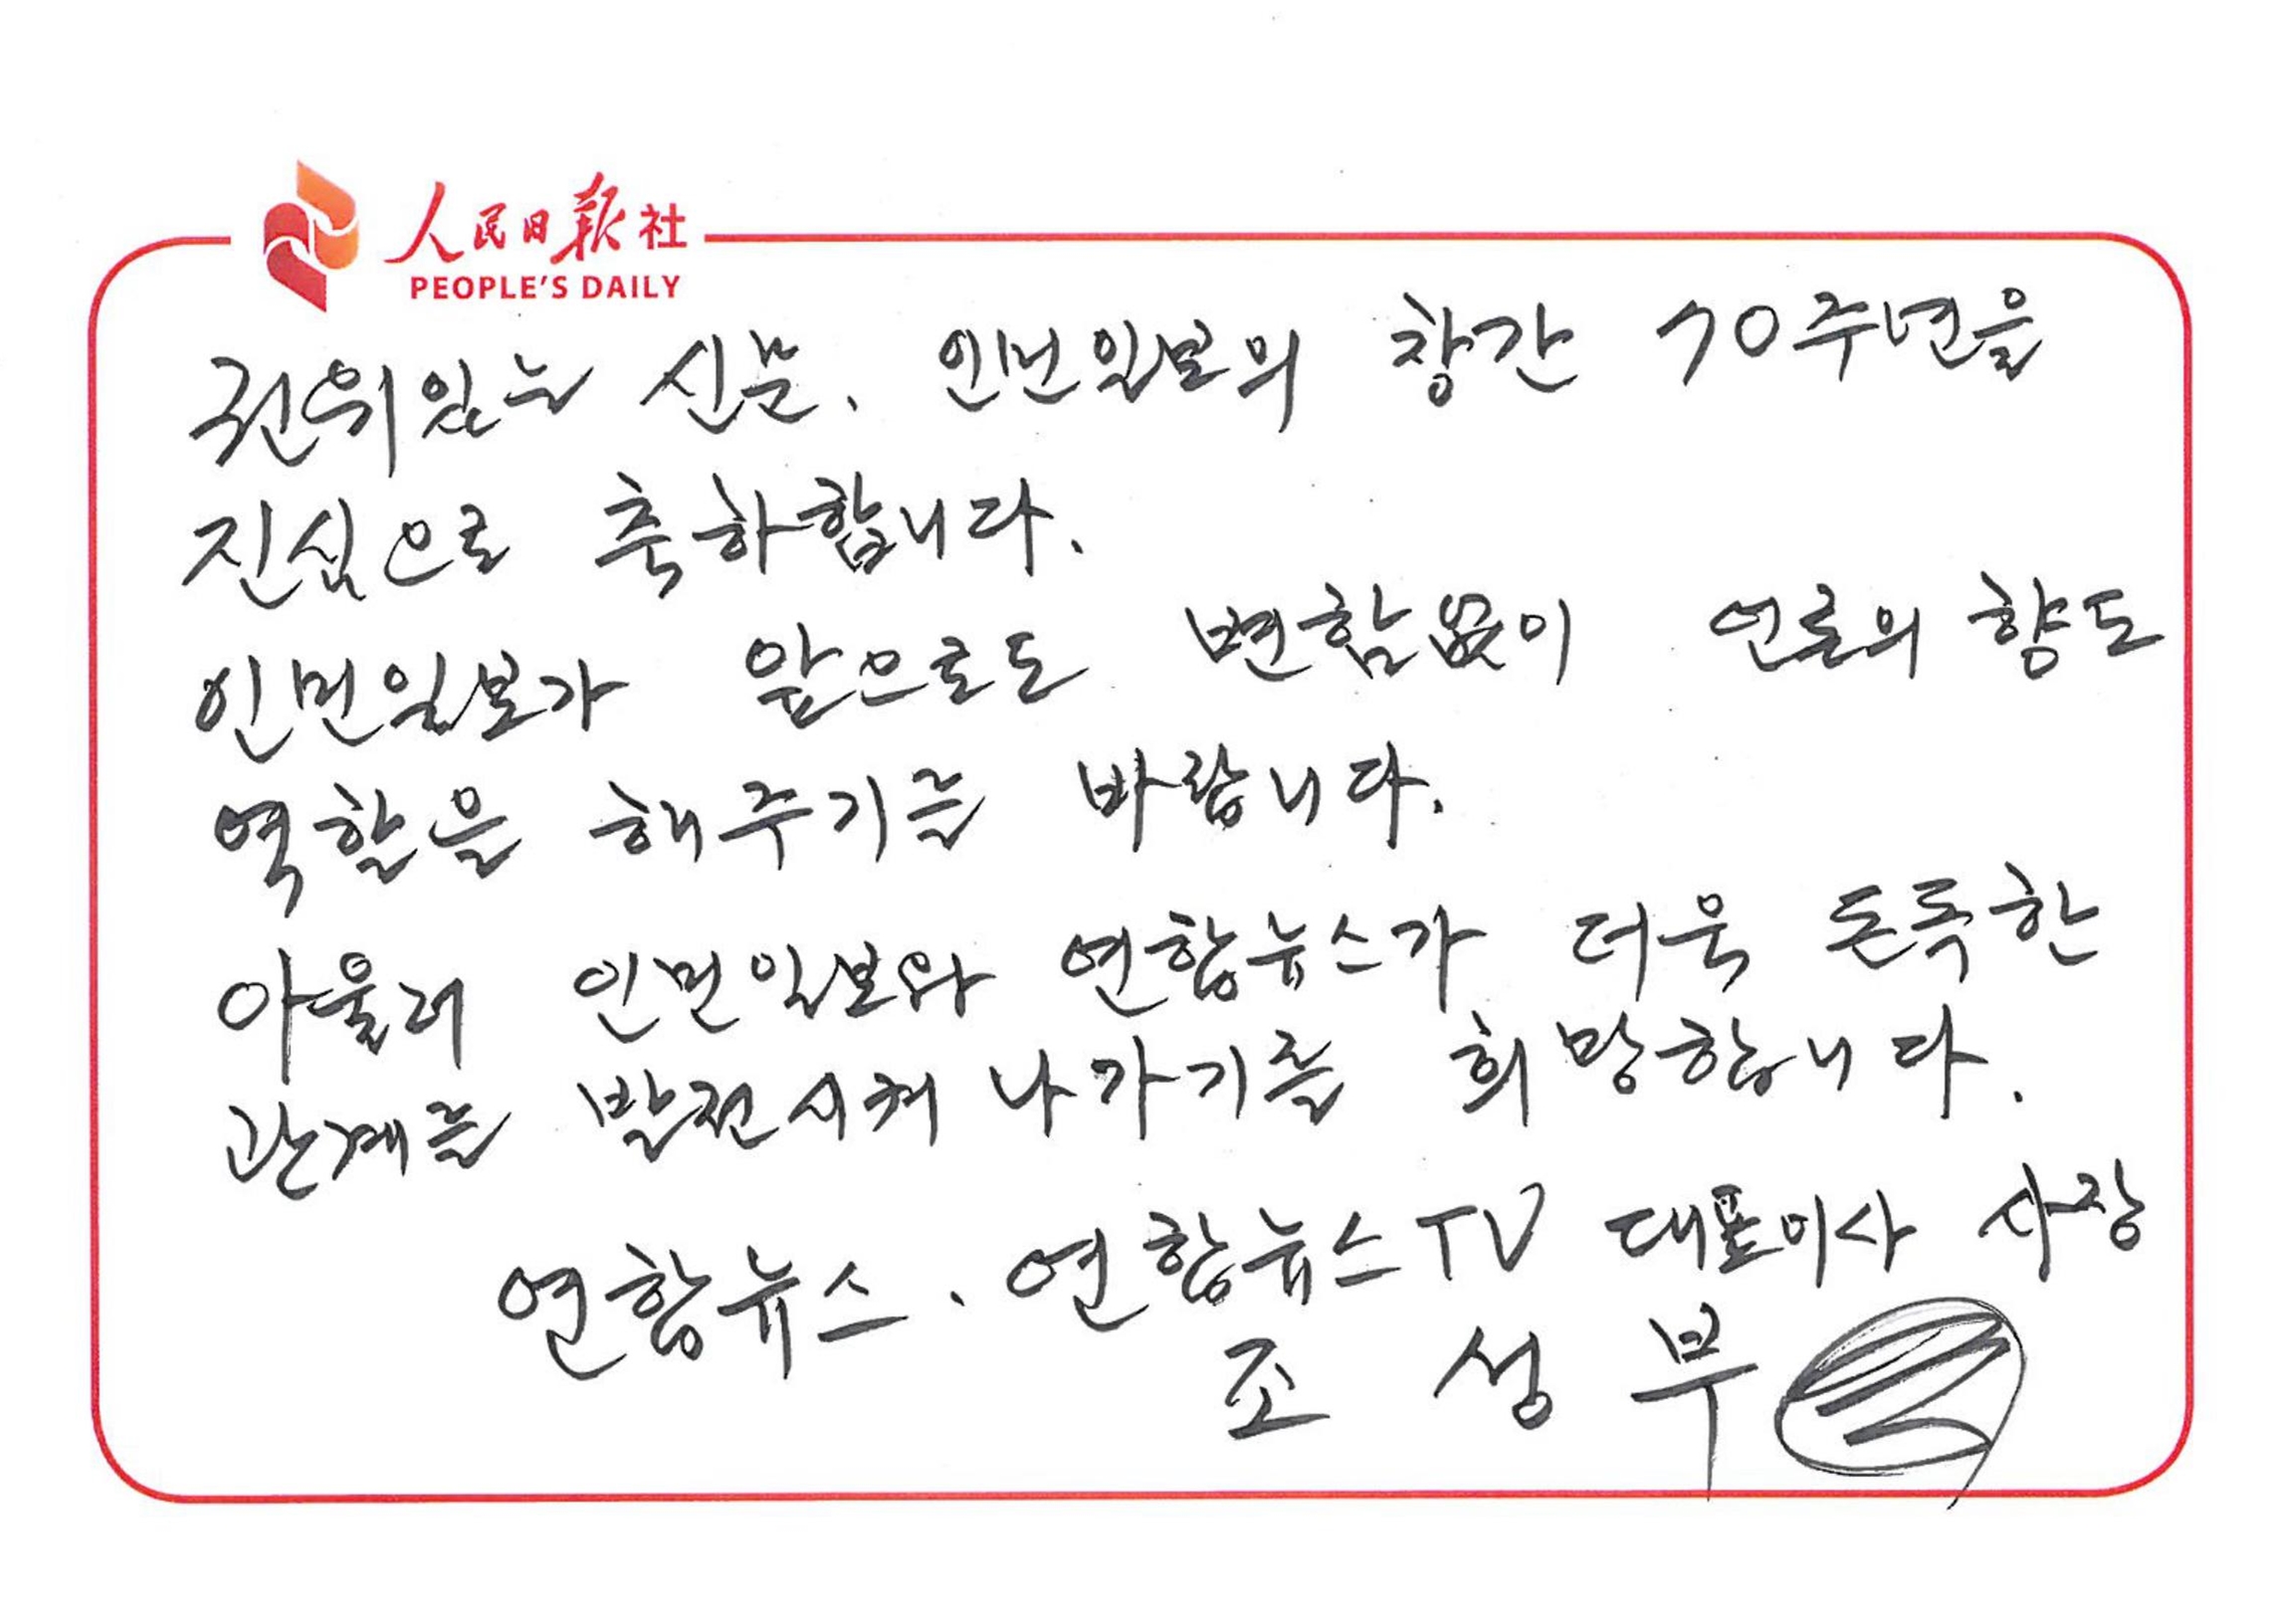 人民日报社
PEOPLE'S DAILY
권위있는 신문, 인민일보의 창간 70주년을
진심으로 축하합니다.
인민일보가 앞으로도 변함없이 언론의 향도
역할을 해주기를 바랍니다.
아울러 인민일보와 연합뉴스가 더욱 돈독한
관계를 발전시켜 나가기를 희망합니다.
연합뉴스·연합뉴스TV 대표이사 사장
조성부